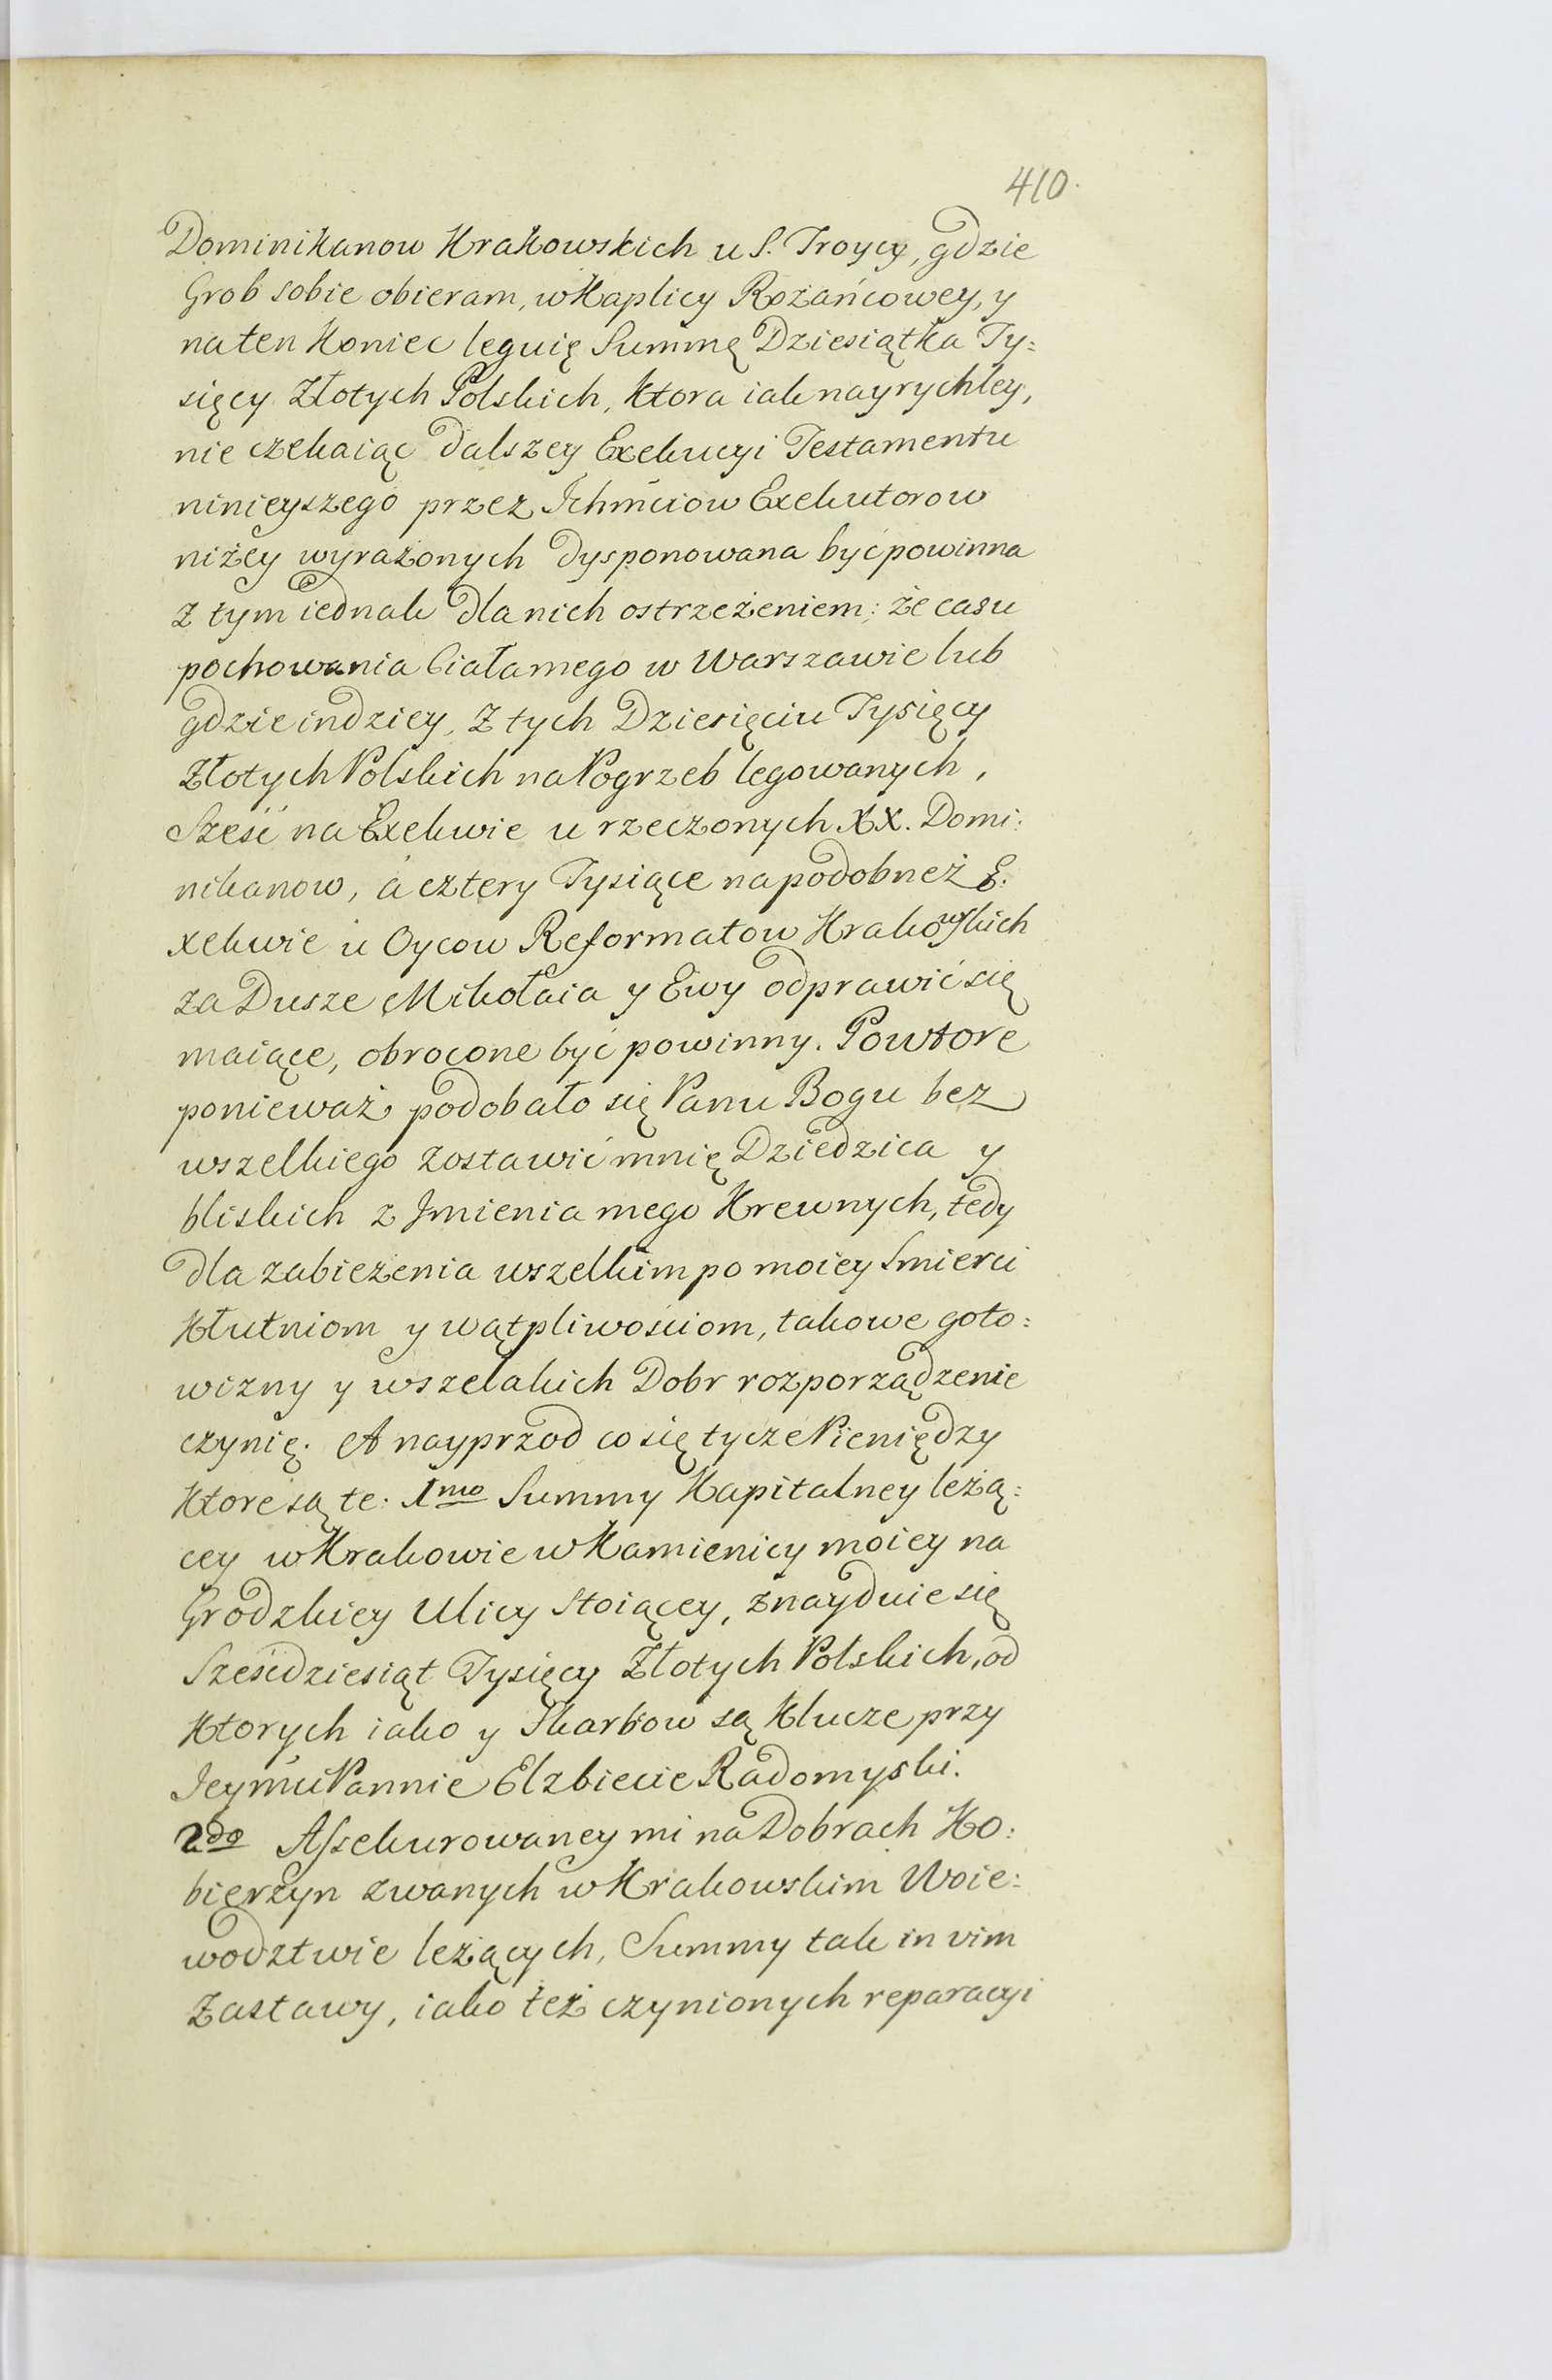 410.
Dominikanow Krakowskich u S. Troycy, gdzie
Grob sobie obieram, w Kaplicy Rożańcowey, y
na ten Koniec leguię Summę Dziesiątka Ty:
sięcy Złotych Polskich, Ktora iak nayrychley,
nie czekaiąc dalszey Exekucyi Testamentu
ninieyszego przez Ichmciow Exekutorow
niżey wyrażonych dysponowana być powinna
z tym iednak dla nich ostrzeżeniem: że casu
pochowania Ciała mego w Warszawie lub
gdzie indziey, z tych Dziesięciu Tysięcy
Złotych Polskich na Pogrzeb legowanych,
Sześć na Exekwie u rzeczonych XX. Domi:
nikanow, á cztery Tysiące na podobneż E:
xekwie u Oycow Reformatow Krakowskich
za Dusze Mikołaia y Ewy odprawić się
maiące, obrocone być powinny. Powtore
ponieważ podobało się Panu Bogu bez
wszelkiego zostawić mnię Dziedzica y
bliskich z Jmienia mego Krewnych, tedy
dla zabieżenia wszelkim po moiey Smierci
Kłutniom y wątpliwościom, takowe goto:
wizny y wszelakich Dobr rozporządzenie
czynię. A nayprzod co się tycze Pieniędzy
Ktore są te: 1mo Summy Kapitalney leżą:
cey w Krakowie w Kamienicy moiey na
Grodzkiey Ulicy stoiącey, znayduie się
Sześćdziesiąt Tysięcy Złotych Polskich, od
Ktorych iako y Skarbow są Klucze przy
Jeymci Pannie Elzbiecie Radomyski.
2do Assekurowaney mi na Dobrach Ko:
bierzyn zwanych w Krakowskim Woie:
wodztwie leżących, Summy tak in vim
Zastawy, iako też czynionych reparacyi